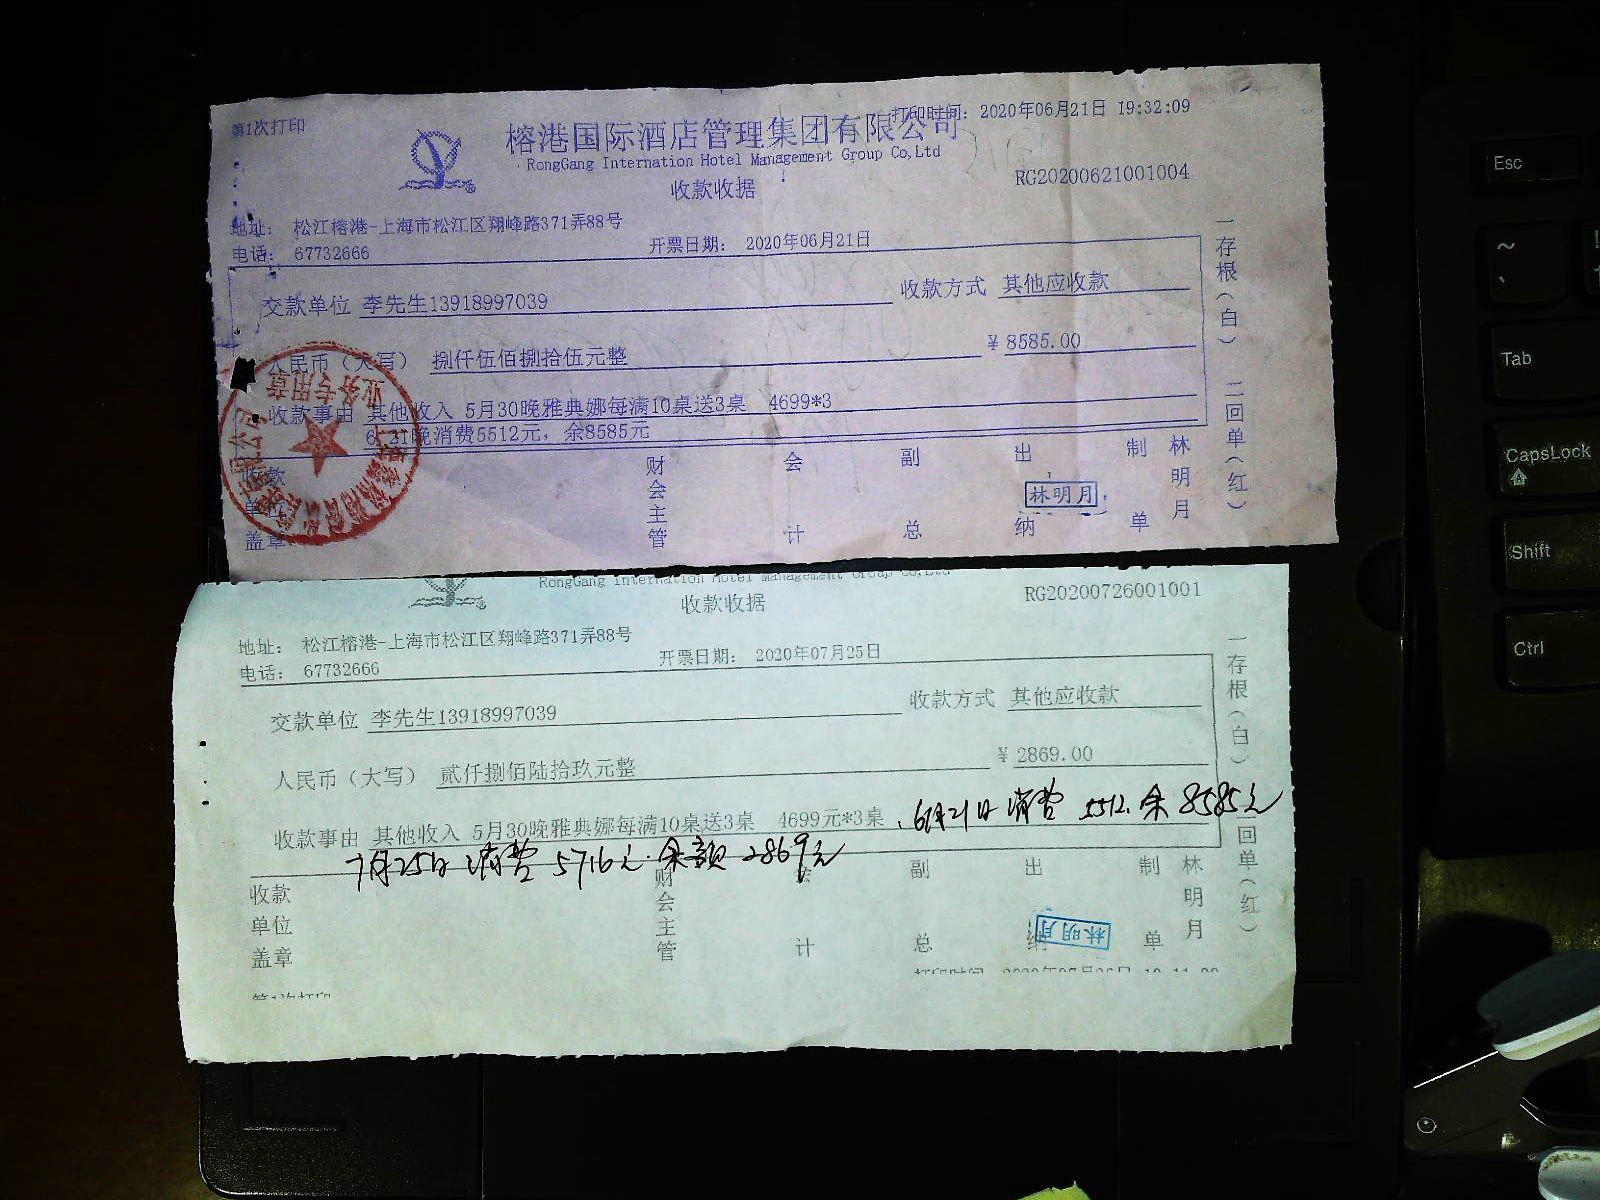 第1次打印
打印时间: 2020年06月21日 19:32:09
榕港国际酒店管理集团有限公司
RongGang Internation Hotel Management Group Co,Ltd
收款收据
RG20200621001004
地址: 松江榕港-上海市松江区翔峰路371弄88号
电话: 67732666
开票日期: 2020年06月21日
交款单位 李先生13918997039
收款方式 其他应收款
人民币(大写) 捌仟伍佰捌拾伍元整
¥8585.00
收款事由 其他收入 5月30晚雅典娜每满10桌送3桌 4699*3
6.21晚消费5512元, 余8585元
收款单位盖章
业务专用章
财会主管
会计
副总
出纳
林明月
制单
林明月
一存根(白) 二回单(红)
RongGang Internation Hotel Management Group Co,Ltd
收款收据
RG20200726001001
地址: 松江榕港-上海市松江区翔峰路371弄88号
电话: 67732666
开票日期: 2020年07月25日
交款单位 李先生13918997039
收款方式 其他应收款
人民币(大写) 贰仟捌佰陆拾玖元整
¥2869.00
收款事由 其他收入 5月30晚雅典娜每满10桌送3桌 4699元*3桌, 6月21日消费5512.余8585元
7月25日消费5716元.余额2869元
收款
单位
盖章
财会主管
会计
副总
出纳
林明月
制单
林明月
一存根(白) 二回单(红)
第1次打印
Esc
~
Tab
CapsLock
Shift
Ctrl